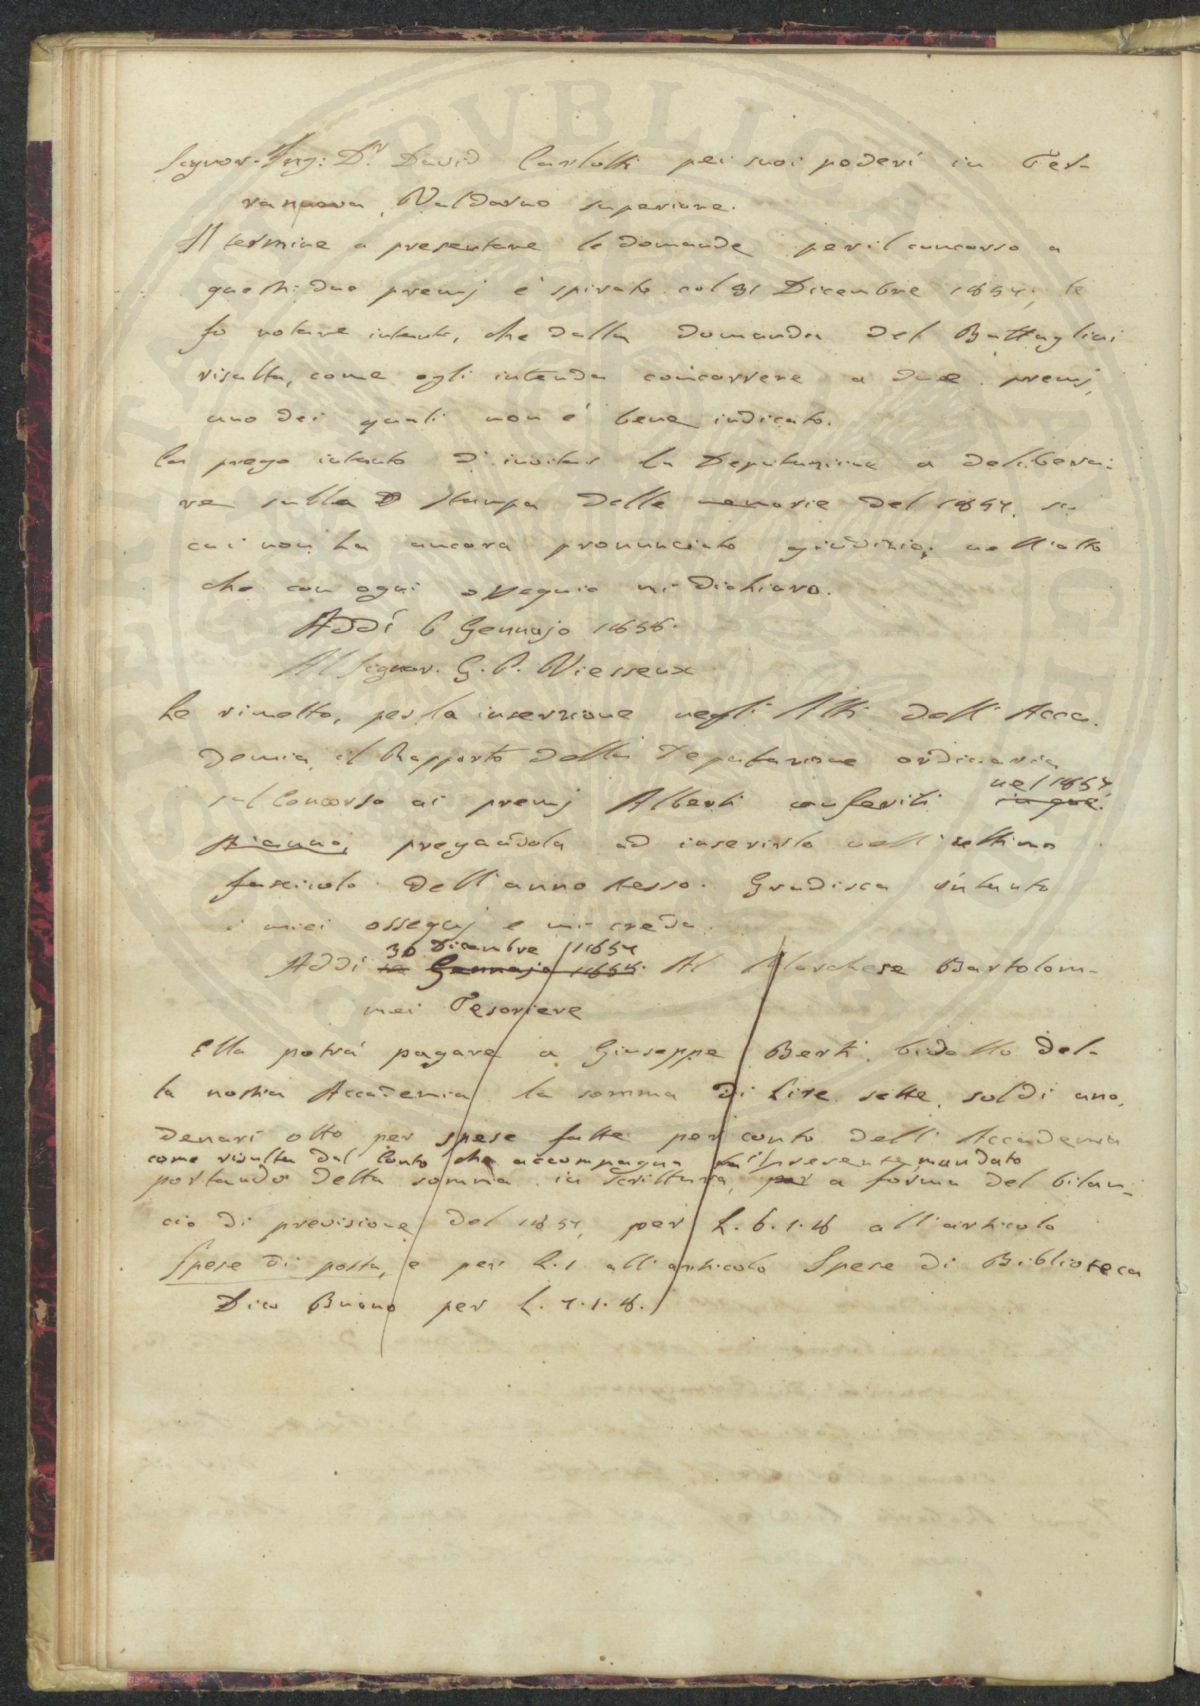 Signor Ing: Dr. David Carlotti pei suoi poderi in Ter-
ranuova, Valdarno superiore.
Il termine a presentare le domande per il concorso a
questi due premj è spirato col 31 Dicembre 1857; le
fo notare intanto, che dalla domanda del Battaglini
risulta, come egli intenda concorrere a due premj,
uno dei quali non è bene indicato.
La prego intanto d'invitar la Deputazione a delibera-
re sulla stampa delle memorie del 1857. su
cui non ha ancora pronunciato giudizio; nell'atto
che con ogni ossequio mi dichiaro.
Addì 6 Gennajo 1858.
Al Signor. G. P. Viesseux
Le rimetto, per la inserzione negli Atti dell'Acca-
demia, il Rapporto della Deputazione ordinaria
sul Concorso ai premj Alberti conferiti in que-
nel 1857,
st'anno, pregandola ad inserirlo nell'ultimo
fascicolo dell'anno stesso. Gradisca intanto
i miei ossequj e mi creda.
30 Dicembre 1857
Addì Gennajo 1858. Al Marchese Bartolom-
mei Tesoriere
Ella potrà pagare a Giuseppe Berti, bidello del-
la nostra Accademia la somma di Lire sette, soldi uno,
denari otto per spese fatte per conto dell'Accademia
come risulta dal Conto che accompagna il presente mandato
portando detta somma in scrittura, per a forma del bilan-
cio di previsione del 1857, per L. 6. 1. 8 all'articolo
Spese di posta, e per L. 1 all'articolo Spese di Biblioteca
Dico Buono per L. 7. 1. 8.